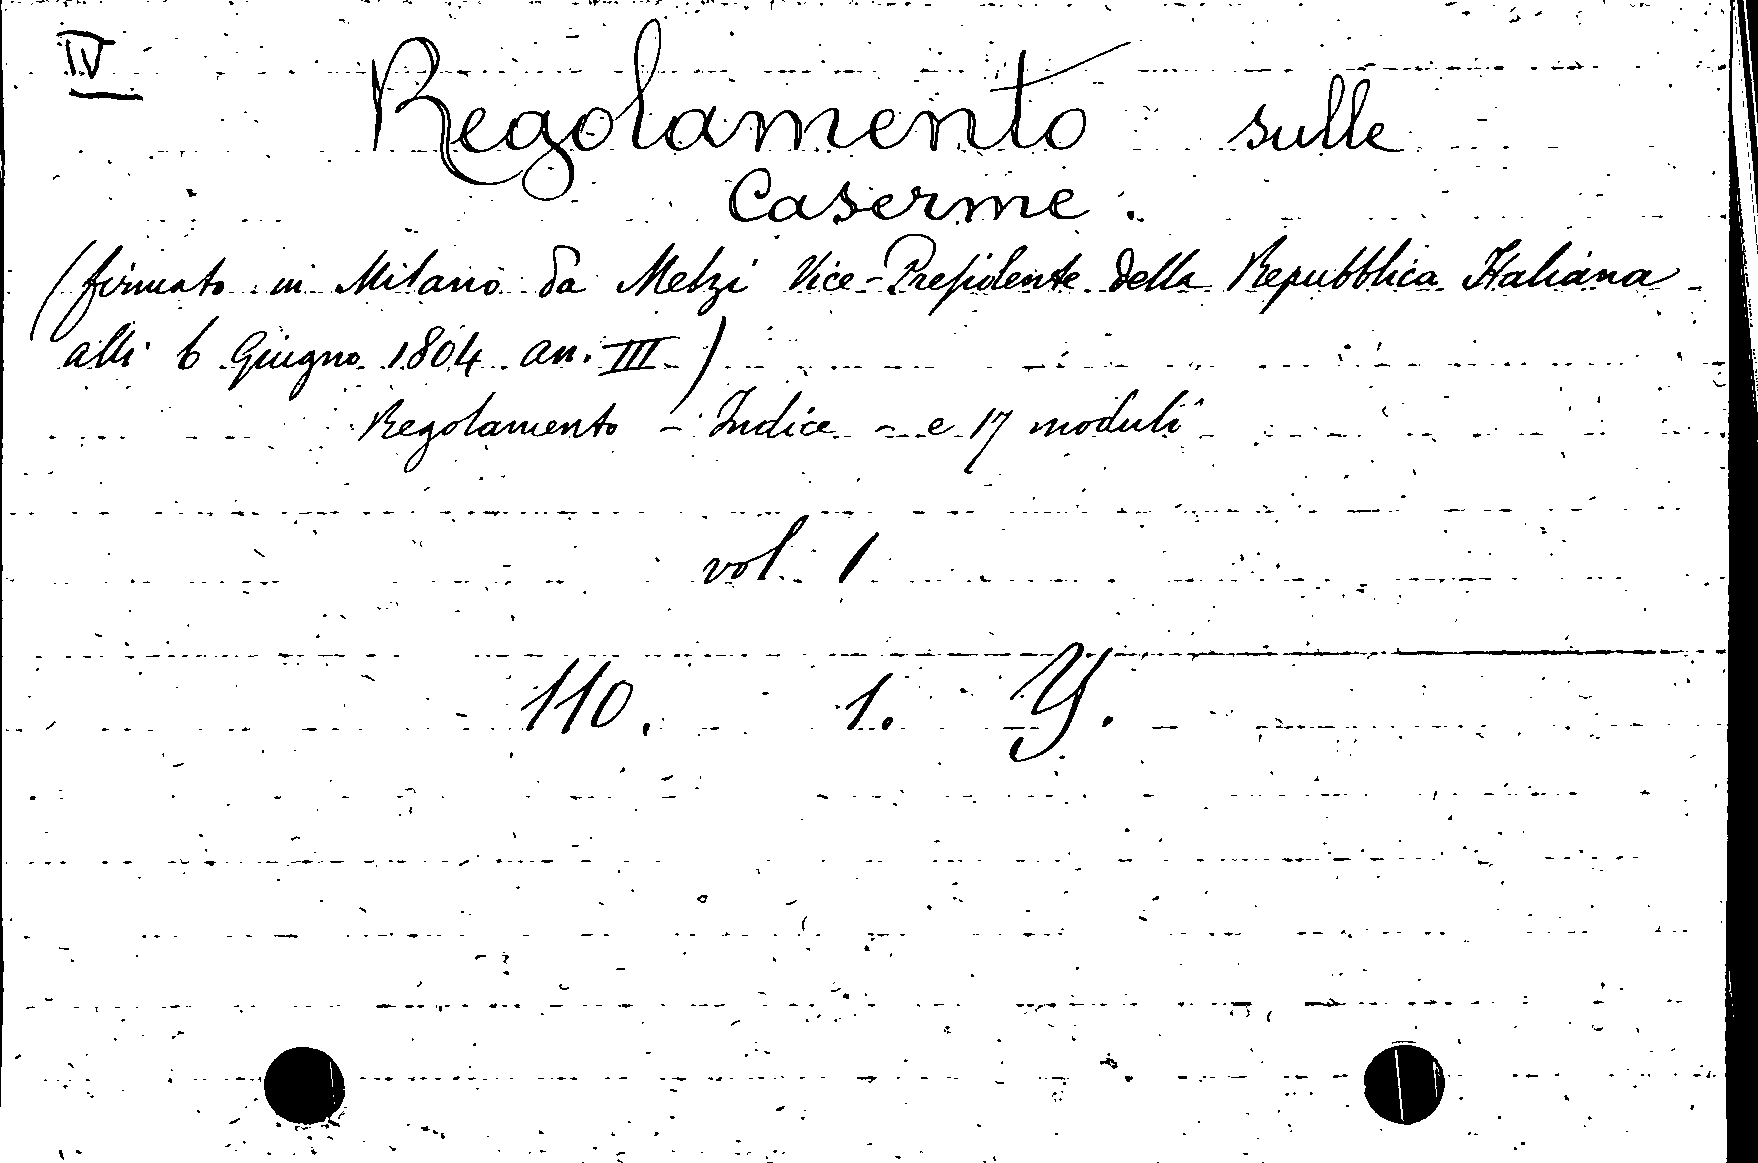 IV
Regolamento sulle
Caserme.
(firmato in Milano da Melzi Vice-Presidente della Repubblica Italiana
alli 6 Giugno 1804 an. III)
Regolamento - Indice - e 17 moduli
vol. 1
110. 1. Y.